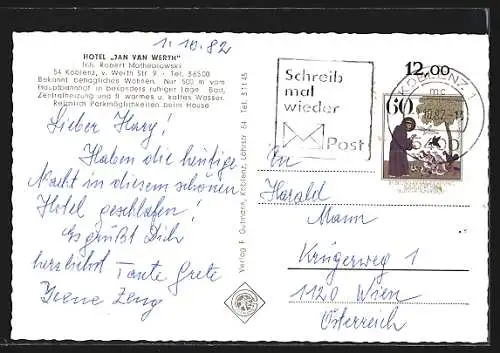 1. 10. 82
HOTEL „JAN VAN WERTH"
Inh. Robert Mathejowski
54 Koblenz, v. Werth Str. 9 · Tel. 36500
Bekannt behagliches Wohnen. Nur 500 m vom
Hauptbahnhof in besonders ruhiger Lage. Bad,
Zentralheizung und fl. warmes u. kaltes Wasser.
Reichlich Parkmöglichkeiten beim Hause
Lieber Hary!
Haben die heutige
Nacht in diesem schönen
Hotel geschlafen!
Es grüßt Dich
herzlichst Tante Grete
Irene Zeng
Verlag F. Gutmann, Koblenz, Löhrstr. 64 Tel. 3 11 45
Schreib
mal
wieder
Post
12,00
KOBLENZ 1
mc
5400
60
An
Harald
Mann
Krügerweg 1
1120 Wien
Österreich